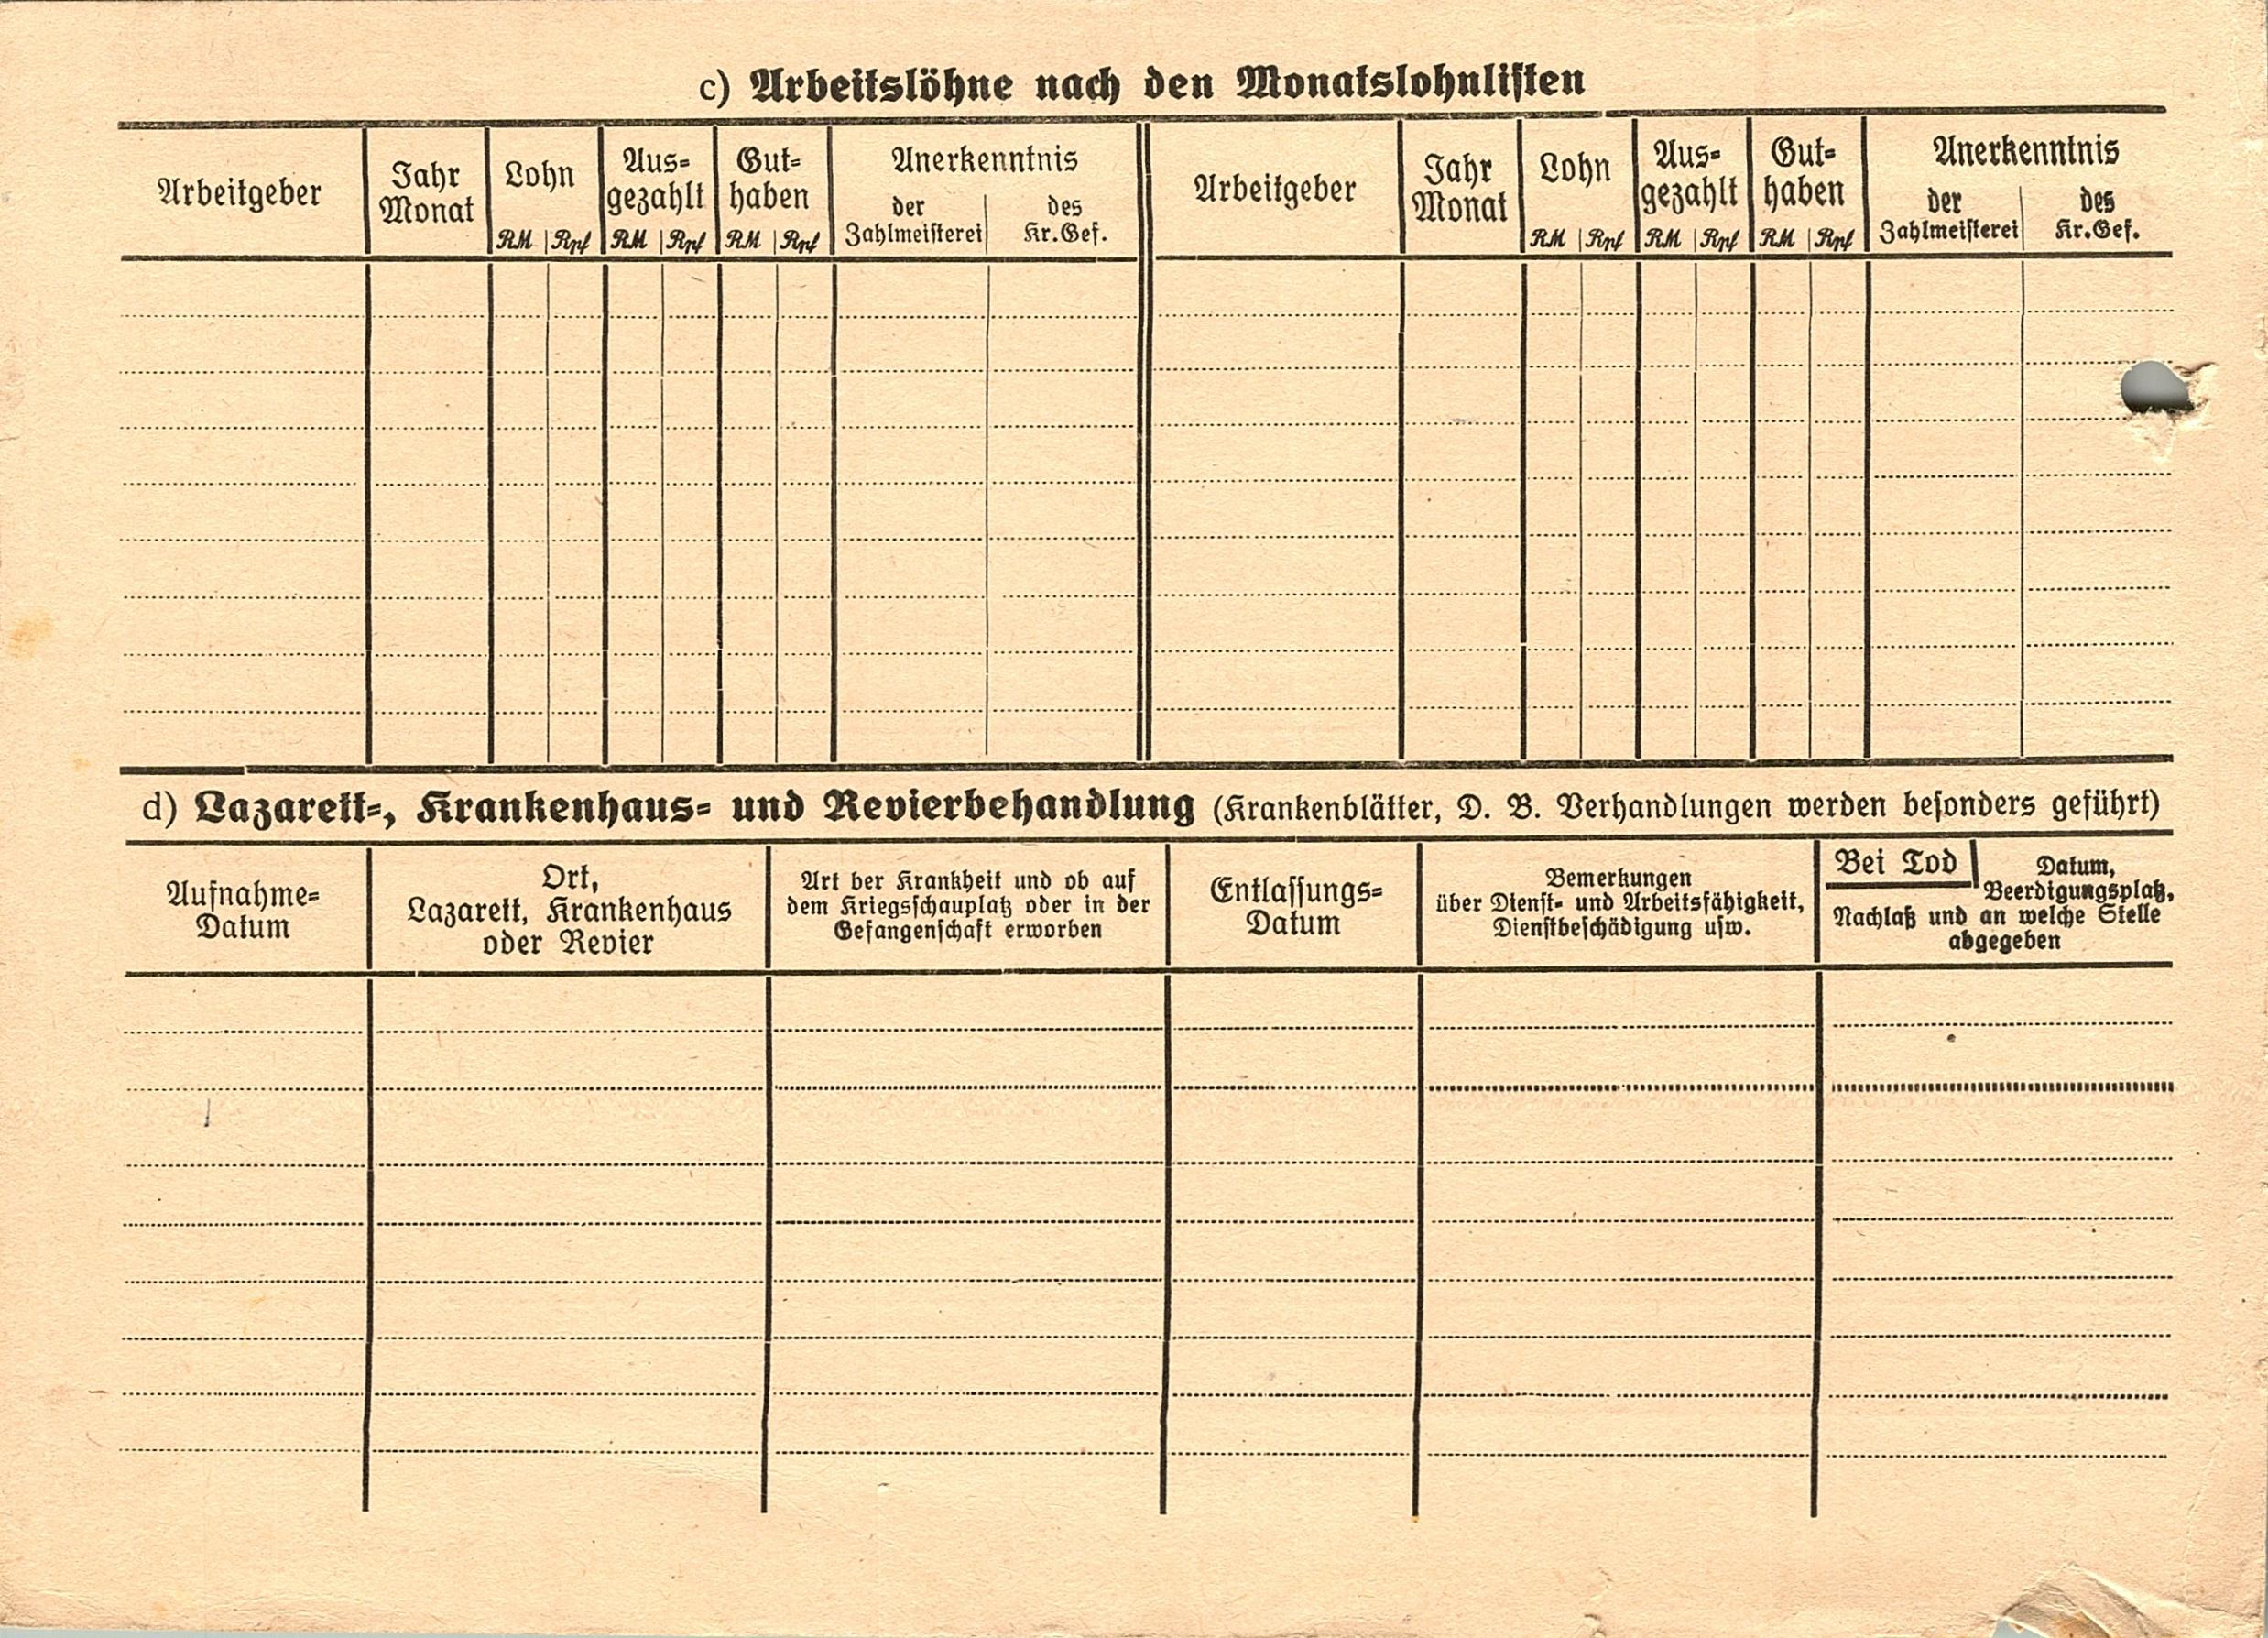 c) Arbeitslöhne nach den Monatslohnlisten
Arbeitgeber
Jahr
Monat
Lohn
RM Rpf
Aus-
gezahlt
RM Rpf
Gut-
haben
RM Rpf
Anerkenntnis
der
Zahlmeisterei
des
Kr.Gef.
Arbeitgeber
Jahr
Monat
Lohn
RM Rpf
Aus-
gezahlt
RM Rpf
Gut-
haben
RM Rpf
Anerkenntnis
der
Zahlmeisterei
des
Kr.Gef.
d) Lazarett-, Krankenhaus- und Revierbehandlung (Krankenblätter, D. B. Verhandlungen werden besonders geführt)
Aufnahme-
Datum
Ort,
Lazarett, Krankenhaus
oder Revier
Art ber Krankheit und ob auf
dem Kriegsschauplatz oder in der
Gefangenschaft erworben
Entlassungs-
Datum
Bemerkungen
über Dienst- und Arbeitsfähigkeit,
Dienstbeschädigung usw.
Bei Tod
Datum,
Beerdigungsplatz,
Nachlaß und an welche Stelle
abgegeben